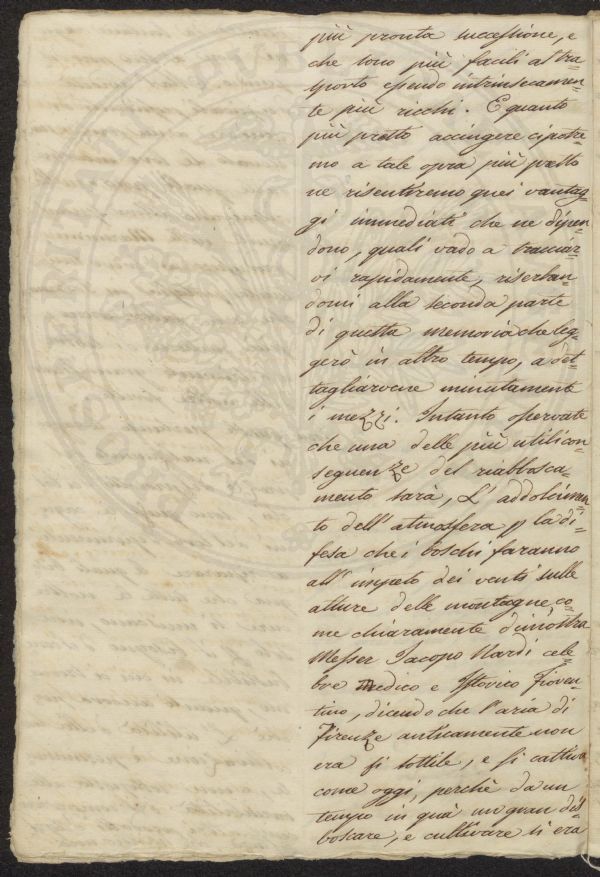 più pronta successione, e
che sono più facili a stra=
sporto essendo intrinsecamen=
te più ricchi. E quanto
più presto accingere ci potre=
mo a tale opra più presto
ne risentiremo quei vantag=
gi immediati che ne dipen=
dono, quali vado a tracciar=
vi rapidamente, riserban=
domi alla seconda parte
di questa memoria che leg=
gerò in altro tempo, a det=
tagliarvene minutamente
i mezzi. Intanto osservate
che una delle più utili con=
seguenze del riabbosca=
mento sarà, L'addolcimen=
to dell'atmosfera p la di=
fesa che i boschi faranno
all'impeto dei venti sulle
alture delle montagne, co=
me chiaramente dimostra
Messer Jacopo Nardi cele=
bre Medico e Istorico Fioren=
tino, dicendo che l'aria di
Firenze anticamente non
era sì sottile, e sì cattiva
come oggi, perchè da un
tempo in quà un gran dis=
boscare, e cultivare si era